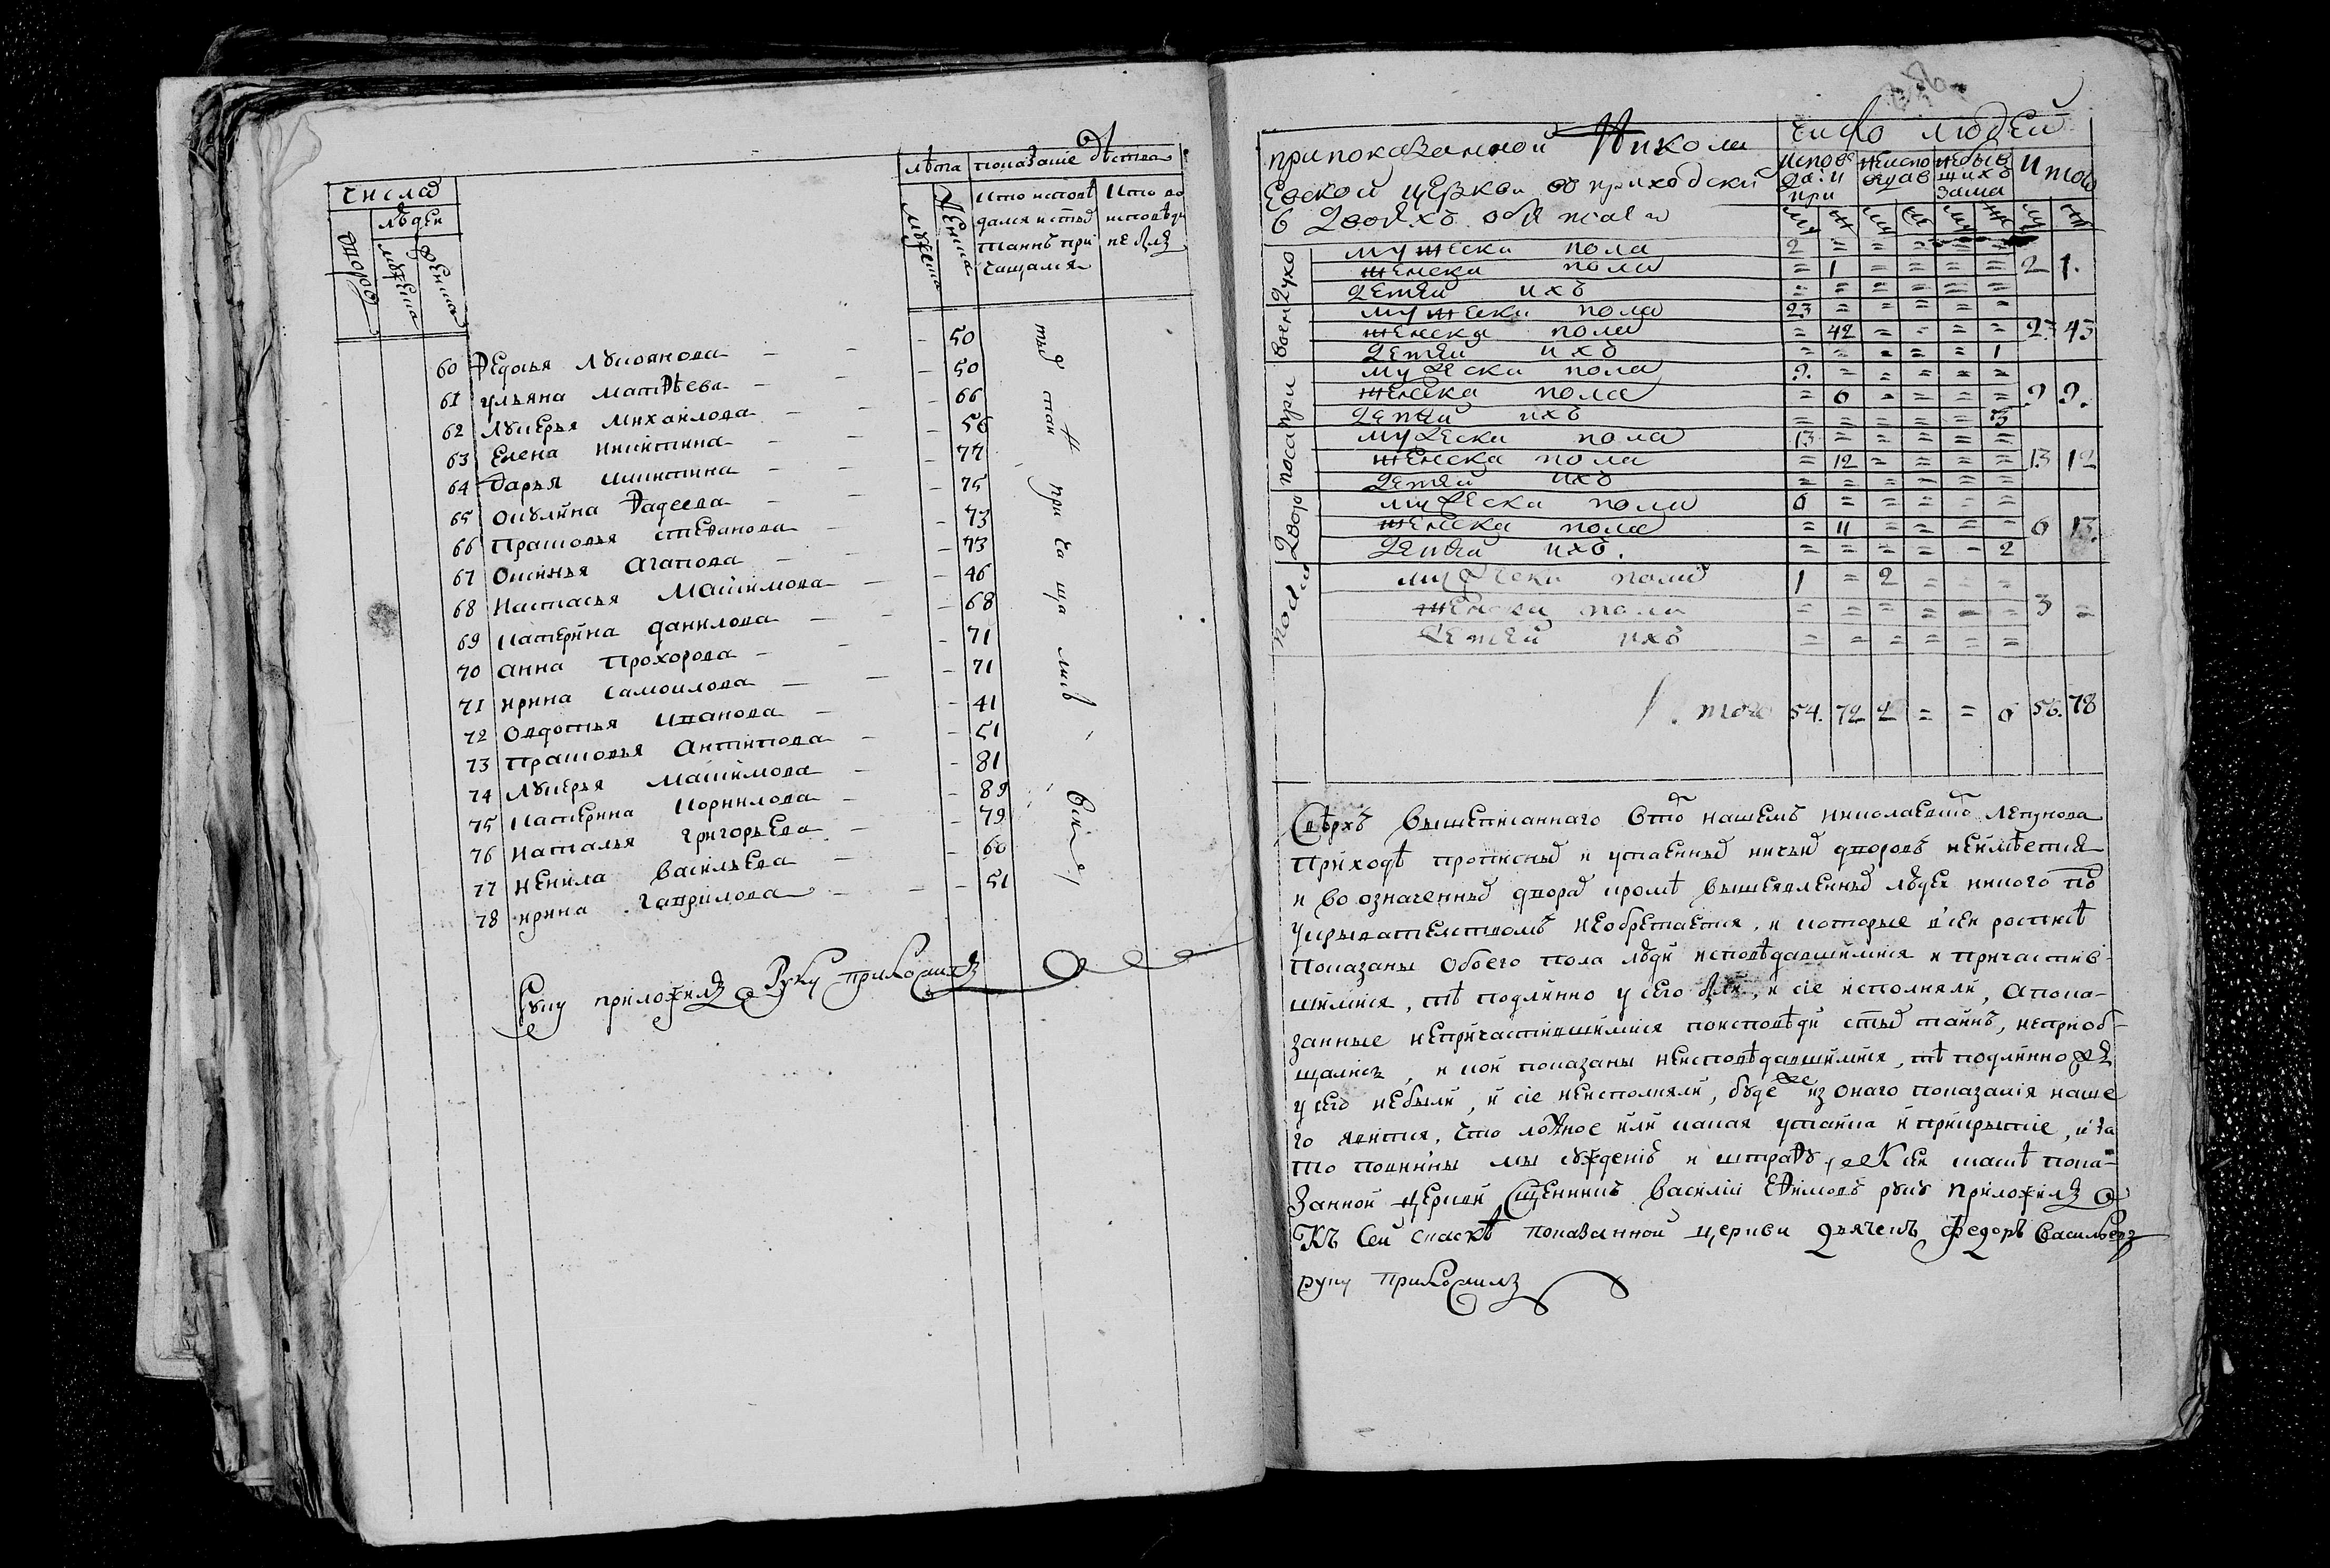 числа
людеи
дворов
мужеска
женска
лѣта
показаніе дѣиства
мужеска
женска
кто исповѣ
дался и стых
таинъ при
чащался
кто во
исповѣди
не былъ
60 Федосья Лукоянова — — — 50
61 ульяна матфѣева — — — 50
62 Лукерья михаилова — — — 66
63 Елена никитина — — — 56
64 дарья никитина — — — 77
65 окулина Фадеева — — — 75
66 Прасковья стефанова — — 73
67 Оксинья агапова — — — 73
68 Настасья Маѯимова — — 46
69 катерина данилова — — — 68
70 анна Прохорова — — — 71
71 ирина самоилова — — — 71
72 Овдотья иванова — — 41
73 Прасковья Антипова — — 51
74 Лукерья маѯимова — — 81
75 катерина корнилова — — 89
76 наталья григорьева — — 79
77 ненила васильева — — 60
78 ирина гаврилова — — — 51
тых таинъ причащались
руку приложилъ руку приложилъ
при показанной Никола
евской церкви в приходски
х двор.хъ обятаели
число людей
испове
да: и
при
неиспо
ведав
небыв
шихъ
зама
итого
му же му же му же му же
духо
мужеска пола 2 = = = = =
женска пола = 1 = = = = 2 1.
детей ихъ = = = = = =
воен
мужеска пола 23 = = = = =
женска пола = 42 = = = = 23 43
детей ихъ = = = = = 1
при
мужеска пола 9. = = = = =
женска пола = 6 = = = = 9 9.
детей ихъ = = = = = 3
поса
мужеска пола 13 = = = = =
женска пола = 12 = = = = 13 12
детей ихъ = = = = = =
двор
мужеска пола 6 = = = = =
женска пола = 11 = = = = 6 13.
детей ихъ. = = = = = 2
мужеска пола 1 = 2 = = =
женска пола = = = = = = 3 =
детей ихъ = = = = = =
Итого 54. 72 2 = = 6 56. 78
Сверхъ вышеписаннаго вто нашемъ николаевско
приходѣ прописных и утаенных ничьих дворовъ неимѣется
и во означенных дворах кромѣ вышеявленных людеи никого по
укрывателствомъ необретается, и которые в сеи росписѣ
показаны обоего пола люди исповѣдавшимися и причастив-
шимися, тѣ подлинно у сего были, и сіе исполняли, а пока-
занные непричастившимися по исповѣди стых таинъ, неприоб-
щались, и кои показаны неисповѣдавшимися, тѣ подлинно
у сего небыли, и сіе неисполняли, буде же из онаго показанія наше
го явится, что ложное или какая утаика и прикрытіе, и за
то повинны мы сужденію и штрафу, К сеи скаскѣ пока-
занной церкви Сщенникъ василіи Ефимовъ руку приложилъ
Къ сеи скаскѣ показанной церкви дьячекъ федоръ васильевъ
руку приложилъ